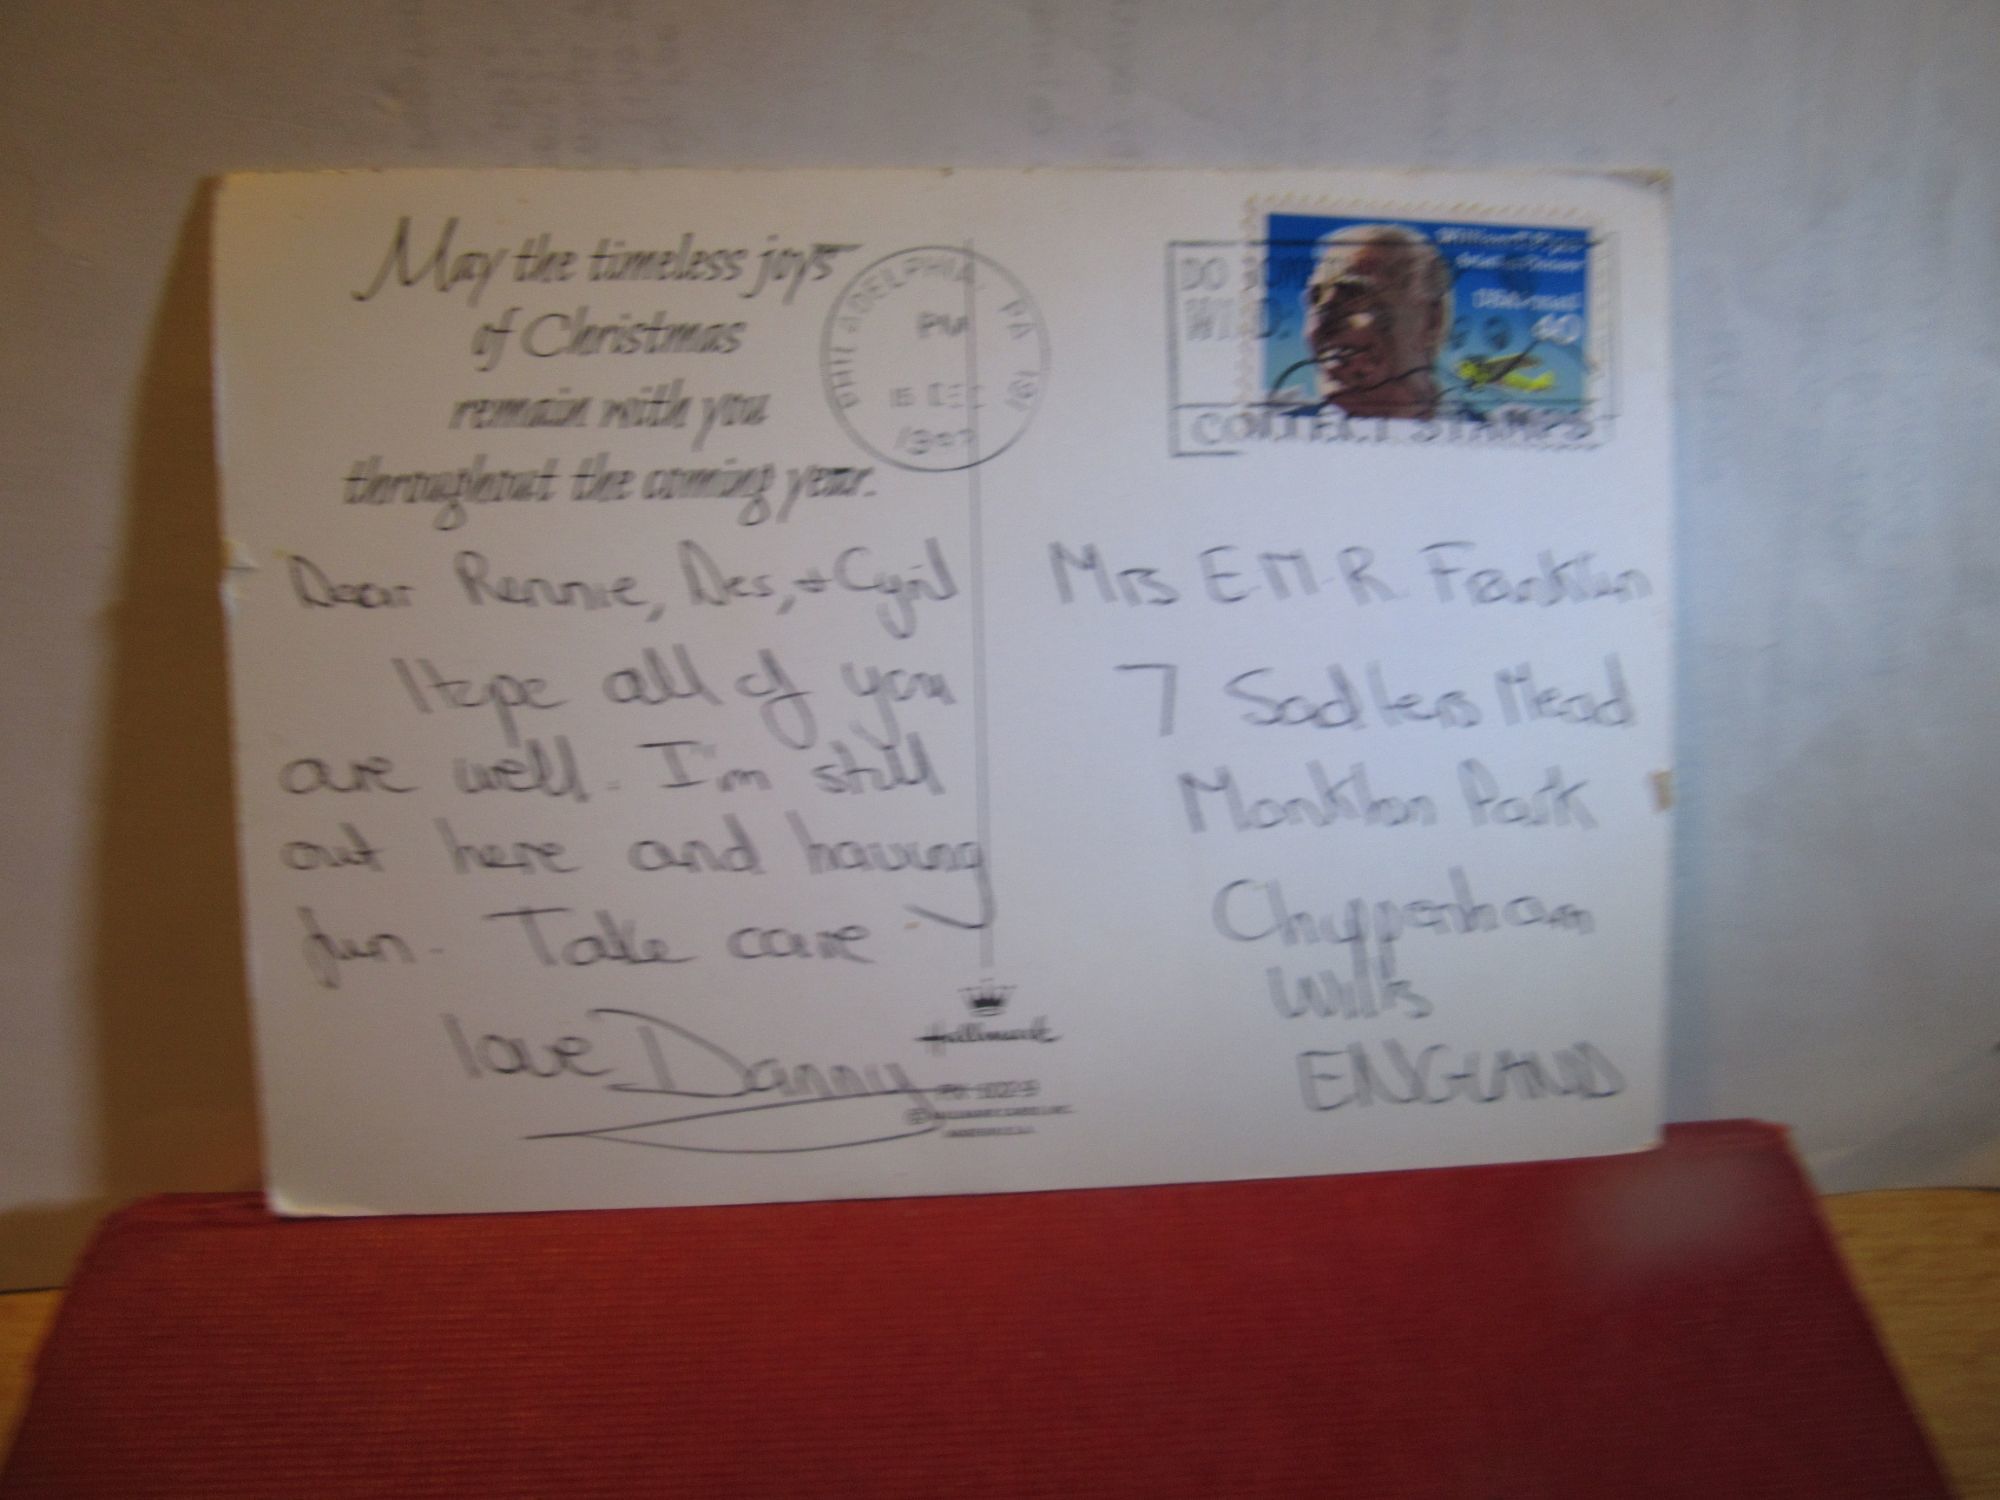 May the timeless joys
of Christmas
remain with you
throughout the coming year.
PHILADELPHIA, PA 191
PM
15 DEC
COLLECT STAMPS
40
Dear Rennie, Des, + Cyril
Hope all of you
are well. I'm still
out here and having
fun. Take care
love Danny
Hallmark
Mrs E.M.R. Franklin
7 Sadlers Mead
Monkton Park
Chippenham
Wilts
ENGLAND